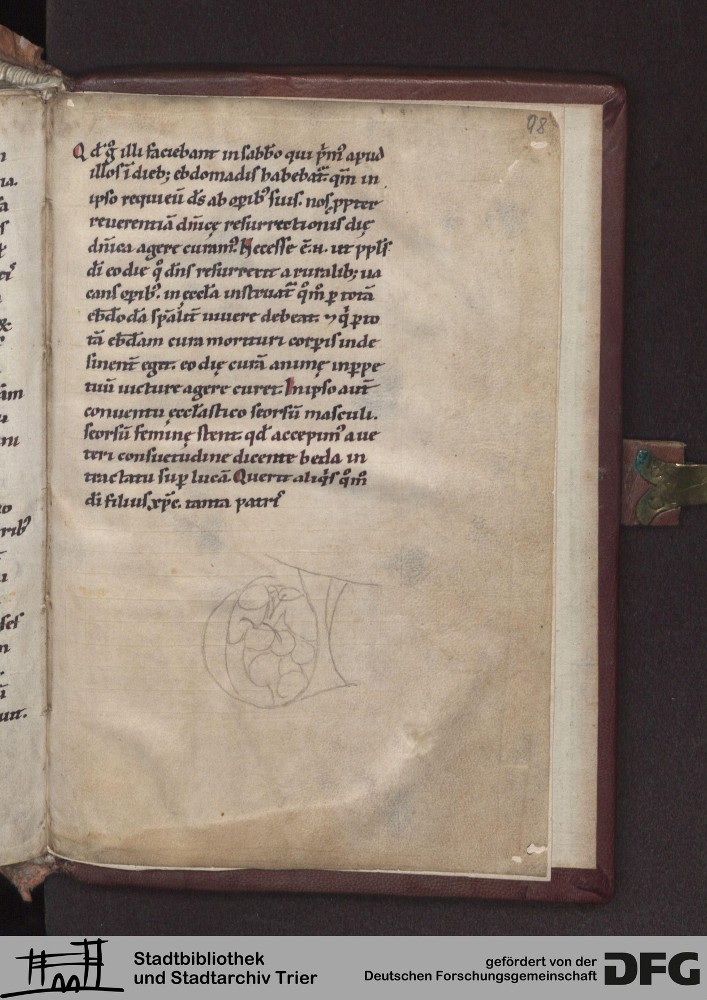 98
Qd g̊ illi faciebant in sabb̄o qui p̄mꝰ apud
illos ī dieb; ebdomadis habebat̄. qm̄ in
ipso requieū d̄s ab oꝑibꝰ suis. nos ꝓpter
reverentiā dn̄icę resurrectionis dię
dn̄ica agere curamꝰ. Necesse ē. u. ut ppl̄s
dī eo die q̊ dn̄s resurrexit a ruralib; ua
cans oꝑibꝰ. in ęccl̄a instruat̄ qm̊ ꝑ totā
ebdodā sp̄alit̄ uiuere debeat. ꝑ to
tā ebdam cura morituri corꝑis inde
sinent̄ egit. eo dię curā animę in ꝑpe
tuū uicture agere curet. In ipso aut̄
conuentu ęccl̄astico seorsū masculi.
seorsū feminę stent. qd̄ accepimꝰ a ue
teri consuetudine dicente beda in
tractatu suꝑ lucā. Querit aliqͥs qm̊
dī filius xp̄c. tanta patris
Stadtbibliothek
und Stadtarchiv Trier
gefördert von der
Deutschen Forschungsgemeinschaft
DFG